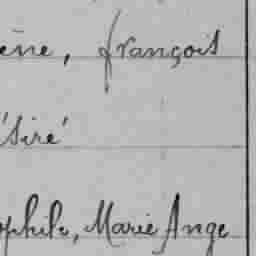 ène, françois
ésiré
ophile, Marie Ange